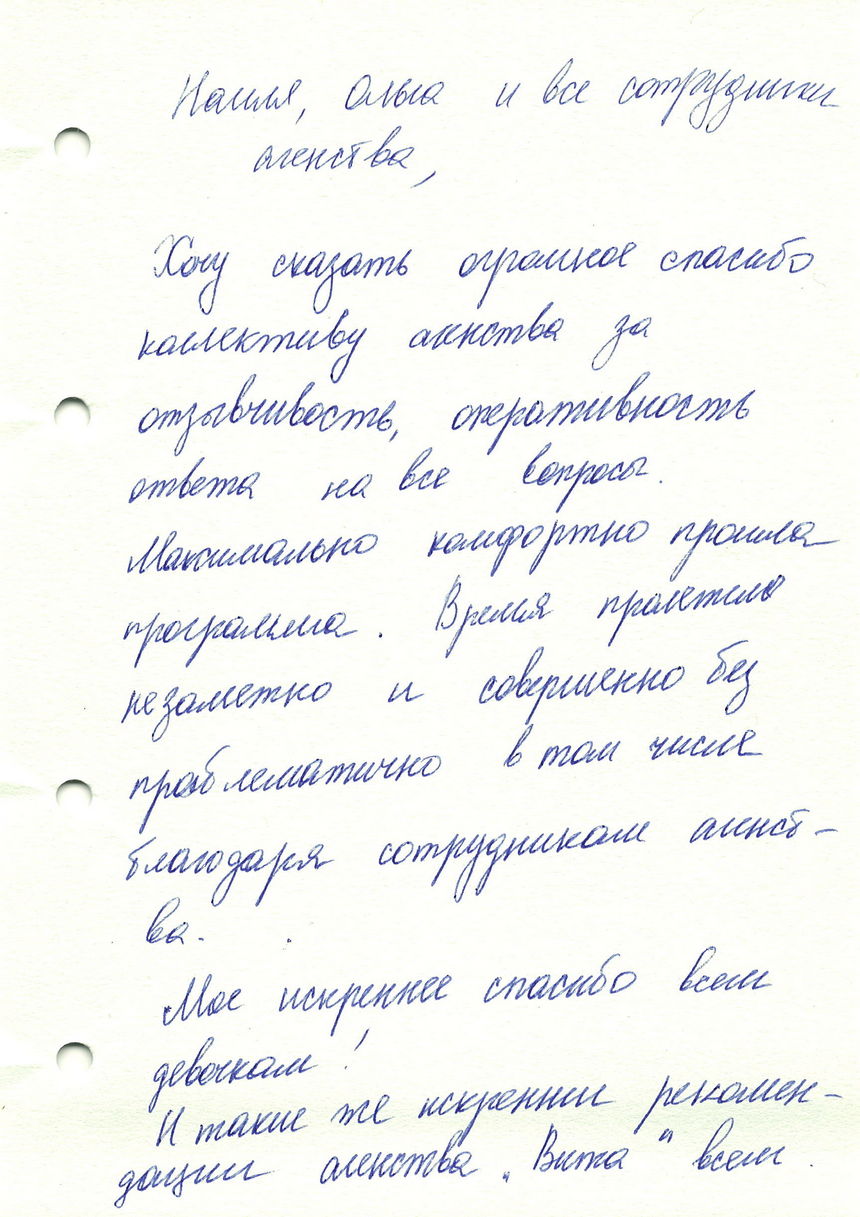 Наиля, Ольга и все сотрудники
агенства,
Хочу сказать огромное спасибо
коллективу агенства за
отзывчивость, оперативность
ответа на все вопросы.
Максимально комфортно прошла
программа. Время пролетело
незаметно и совершенно без
проблематично в том числе
благодаря сотрудникам агенст-
ва.
Мое искреннее спасибо всем
девочкам!
И такие же искренние рекомен-
дации агенства „Вита" всем.